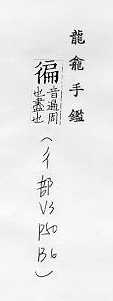 龍龕手鑑
徧
音遍周
也盡也
(彳部V3P50B6)